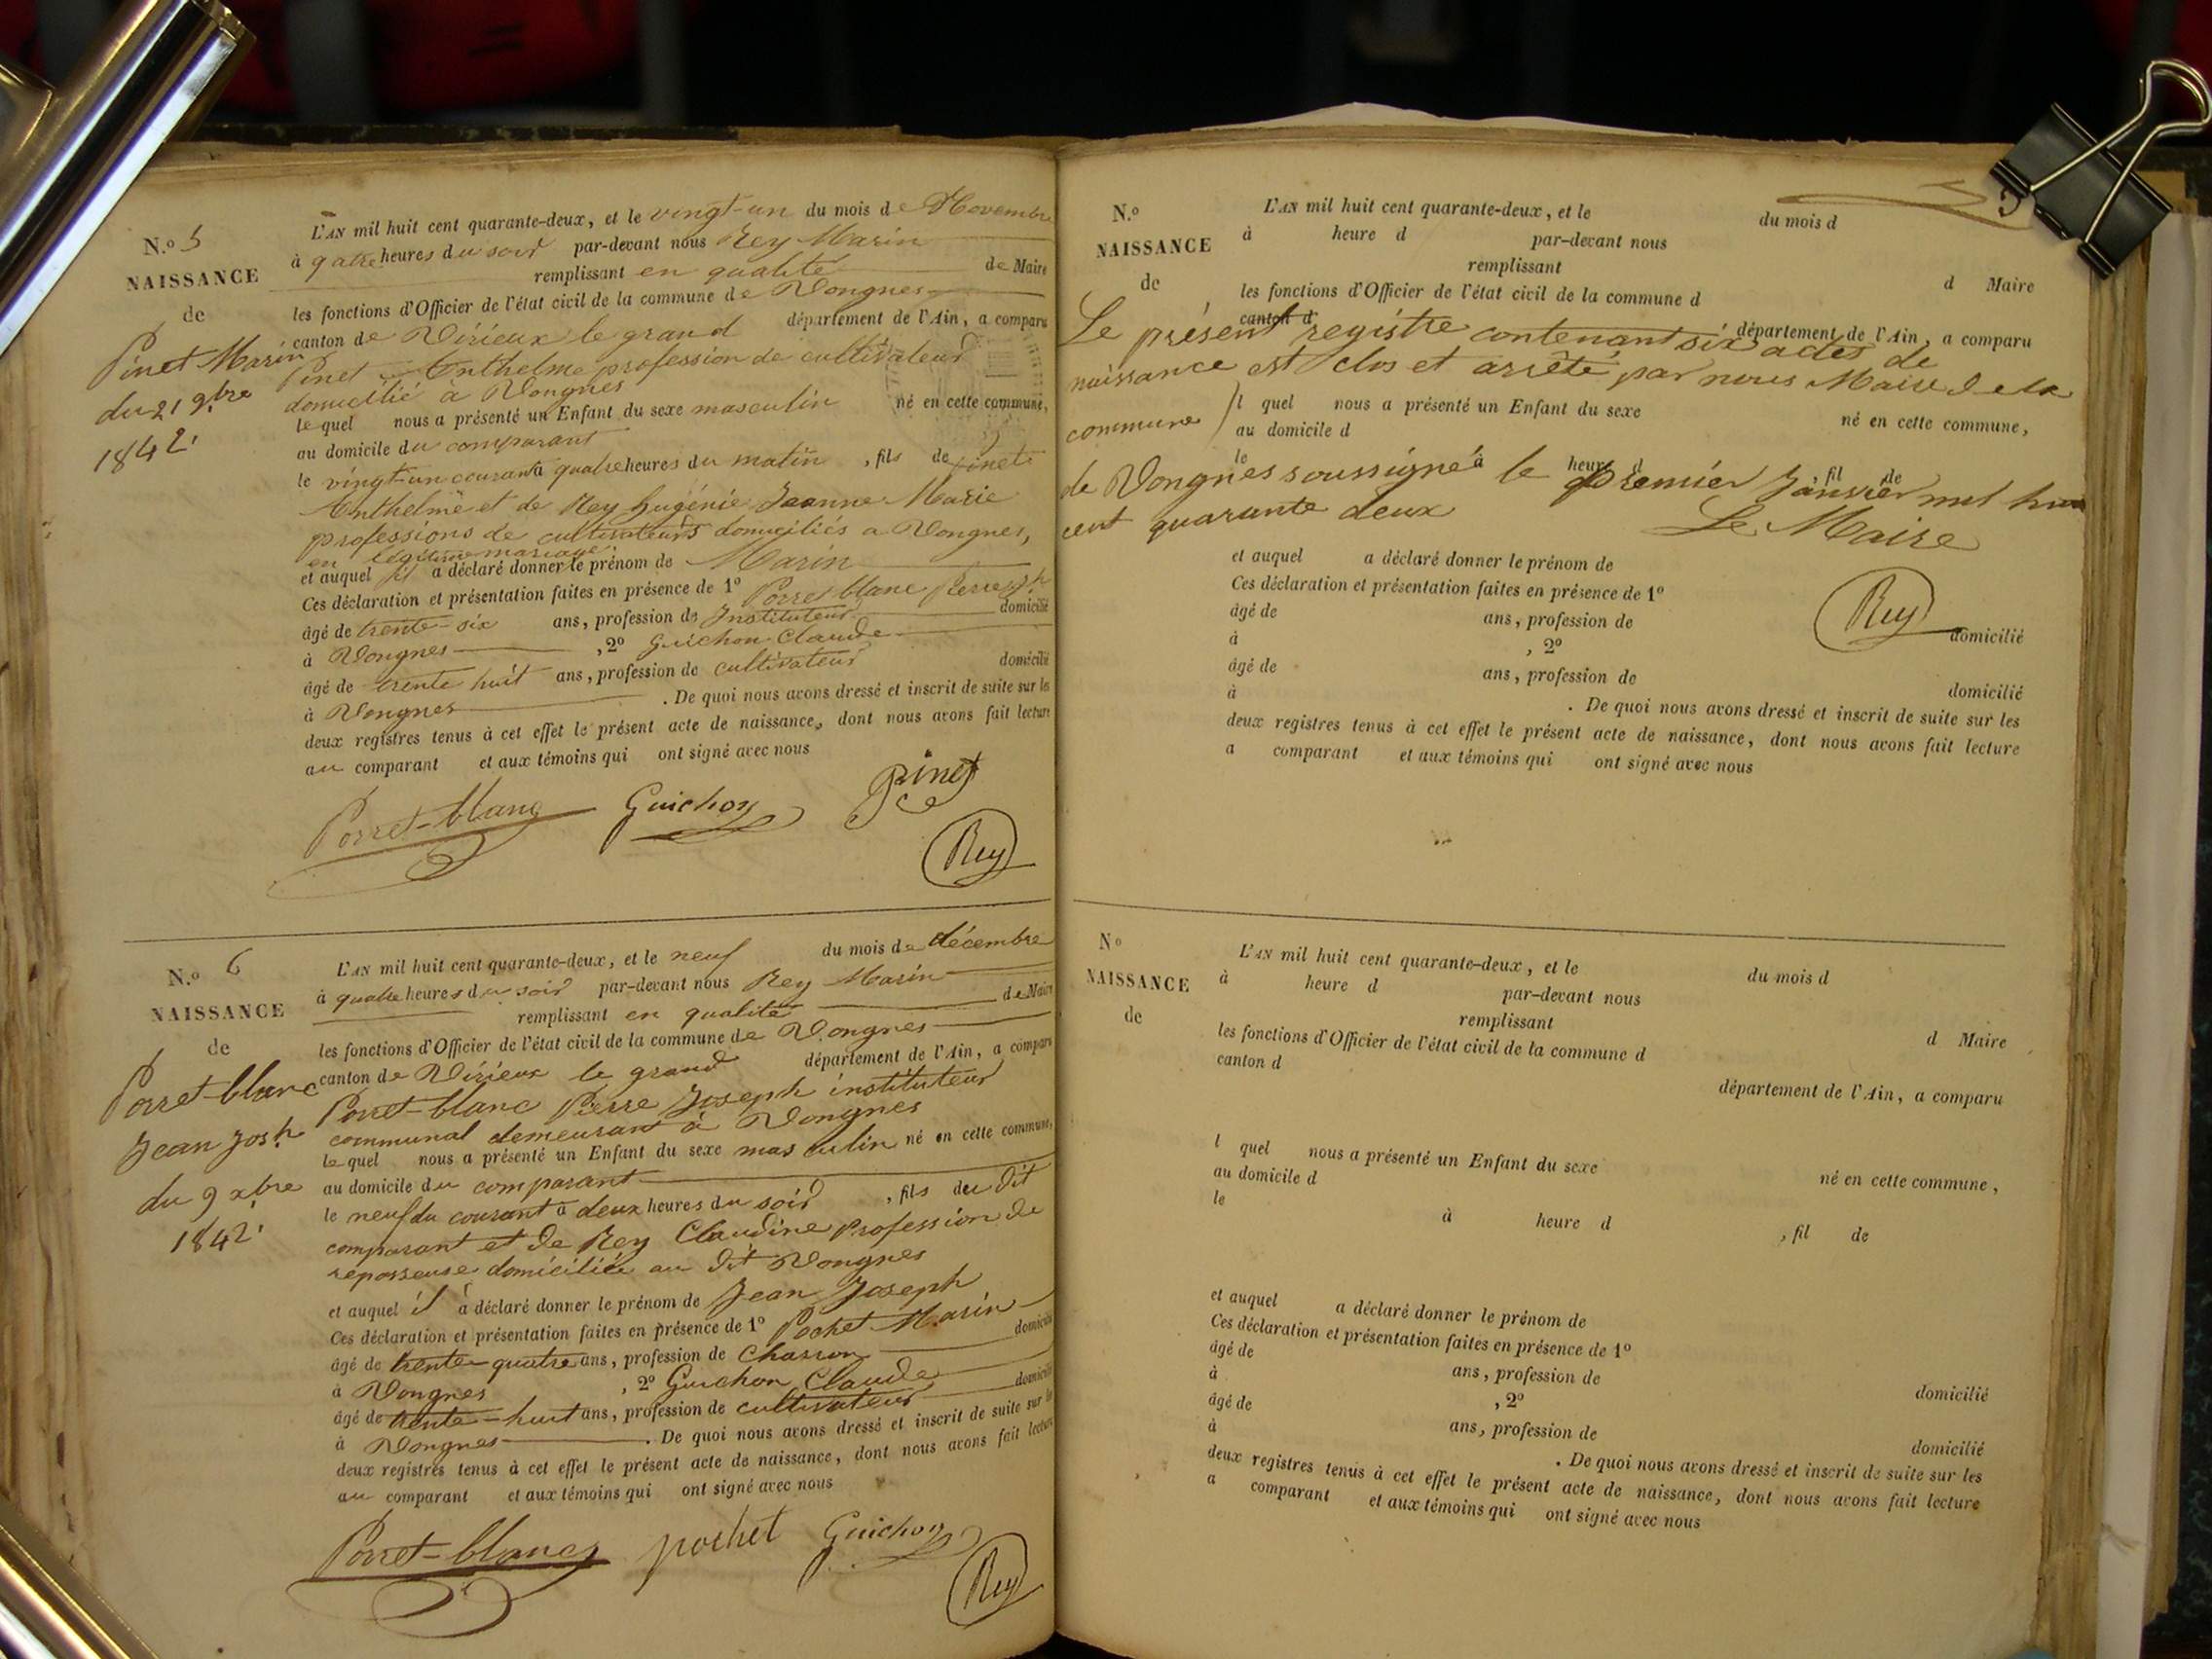 N.º 5
NAISSANCE
de
Pinet Marin
du 21 9bre
1842
L'AN mil huit cent quarante-deux, et le vingt-un du mois de Novembre
à qatre heures du soir par-devant nous Rey Marin
remplissant en qualité de Maire
les fonctions d'Officier de l'état civil de la commune de Vongnes
canton de Virieux le grand département de l'Ain, a comparu
Pinet Anthelme profession de cultivateur
domicilié à Vongnes
lequel nous a présenté un Enfant du sexe masculin né en cette commune,
au domicile du comparant
le vingt-un courant à quatre heures du matin, fils de Pinet
Anthelme et de Rey Eugénie Jeanne Marie
professions de cultivateurs domiciliés a Vongnes,
en légitime mariage
et auquel il a déclaré donner le prénom de Marin
Ces déclaration et présentation faites en présence de 1º Porret blanc Pierre Jph
âgé de trente-six ans, profession de Instituteur domicilié
à Vongnes, 2º Guichon Claude
âgé de trente huit ans, profession de cultivateur domicilié
à Vongnes. De quoi nous avons dressé et inscrit de suite sur les
deux registres tenus à cet effet le présent acte de naissance, dont nous avons fait lecture
au comparant et aux témoins qui ont signé avec nous
Porret-blanc Guichon Pinet
Rey
N.º 6
NAISSANCE
de
Porret-blanc
Jean Josh
du 9 xbre
1842
L'AN mil huit cent quarante-deux, et le neuf du mois de décembre
à quatre heures du soir par-devant nous Rey Marin
remplissant en qualité de Maire
les fonctions d'Officier de l'état civil de la commune de Vongnes
canton de Virieux le grand département de l'Ain, a comparu
Porret-blanc Pierre Joseph instituteur
communal demeurant à Vongnes
lequel nous a présenté un Enfant du sexe masculin né en cette commune,
au domicile du comparant
le neuf du courant à deux heures du soir, fils du dit
comparant et de Rey Claudine Profession de
repasseuse domiciliée au dit Vongnes
et auquel il a déclaré donner le prénom de Jean Joseph
Ces déclaration et présentation faites en présence de 1º Pochet Marin
âgé de trente-quatre ans, profession de Charron domicilié
à Vongnes, 2º Guichon Claude
âgé de trente-huit ans, profession de cultivateur domicilié
à Vongnes. De quoi nous avons dressé et inscrit de suite sur les
deux registres tenus à cet effet le présent acte de naissance, dont nous avons fait lecture
au comparant et aux témoins qui ont signé avec nous
Porret-blanc pochet Guichon
Rey
N.º
NAISSANCE
de
L'AN mil huit cent quarante-deux, et le du mois d
à heure d par-devant nous
remplissant d Maire
les fonctions d'Officier de l'état civil de la commune d
canton d département de l'Ain, a comparu
Le présent registre contenant six actes de
naissance est clos et arrêté par nous Maire de la
commune
l quel nous a présenté un Enfant du sexe né en cette commune,
au domicile d
le à heure d, fil de
de Vongnes soussigné le premier Janvier mil huit
cent quarante deux
Le Maire
Rey
et auquel a déclaré donner le prénom de
Ces déclaration et présentation faites en présence de 1º
âgé de ans, profession de domicilié
à , 2º
âgé de ans, profession de domicilié
à . De quoi nous avons dressé et inscrit de suite sur les
deux registres tenus à cet effet le présent acte de naissance, dont nous avons fait lecture
a comparant et aux témoins qui ont signé avec nous
Nº
NAISSANCE
de
L'AN mil huit cent quarante-deux, et le du mois d
à heure d par-devant nous
remplissant d Maire
les fonctions d'Officier de l'état civil de la commune d
canton d département de l'Ain, a comparu
l quel nous a présenté un Enfant du sexe né en cette commune,
au domicile d
le à heure d , fil de
et auquel a déclaré donner le prénom de
Ces déclaration et présentation faites en présence de 1º
âgé de ans, profession de domicilié
à , 2º
âgé de ans, profession de domicilié
à . De quoi nous avons dressé et inscrit de suite sur les
deux registres tenus à cet effet le présent acte de naissance, dont nous avons fait lecture
a comparant et aux témoins qui ont signé avec nous